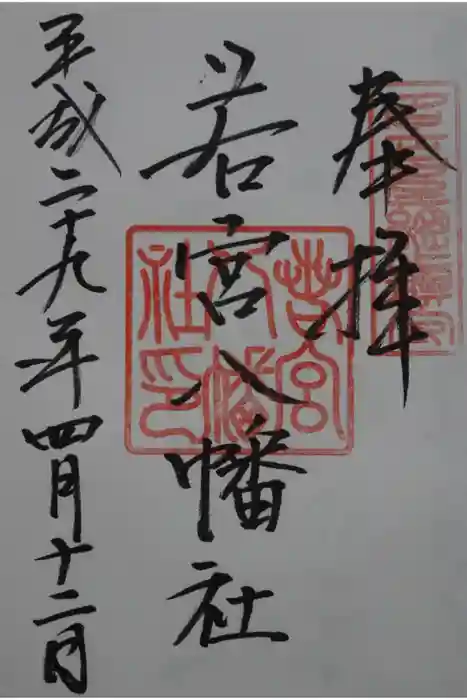 奉拝
若宮八幡社
平成二十九年四月十二日
若宮
八幡
社印